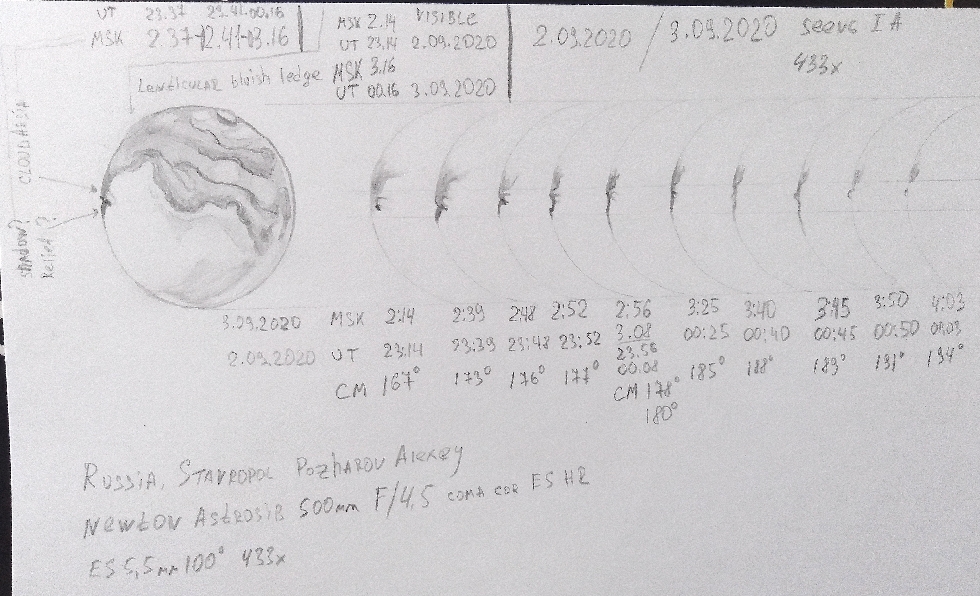 UT 23.37 23.41-00.16
MSK 2.37 2.41-03.16
Lenticular bluish ledge
MSK 2.14 VISIBLE
UT 23.14 2.09.2020
MSK 3.16
UT 00.16 3.09.2020
2.09.2020 / 3.09.2020 seeing I A
433x
CLOUD ARSIA
SHADOW?
Relief?
3.09.2020 MSK 2:14 2:39 2:48 2:52 2:56 3:25 3:40 3:45 3:50 4:03
3.08
2.09.2020 UT 23:14 23:39 23:48 23:52 23.56 00:25 00:40 00:45 00:50 01,03
00.08
CM 167° 173° 176° 177° CM 178° 185° 188° 189° 191° 194°
180°
RUSSIA, STAVROPOL POZHAROV Alexey
NEWTON ASTROSIB 500mm F/4,5 COMA COR ES HR
ES 5,5mm 100° 433x